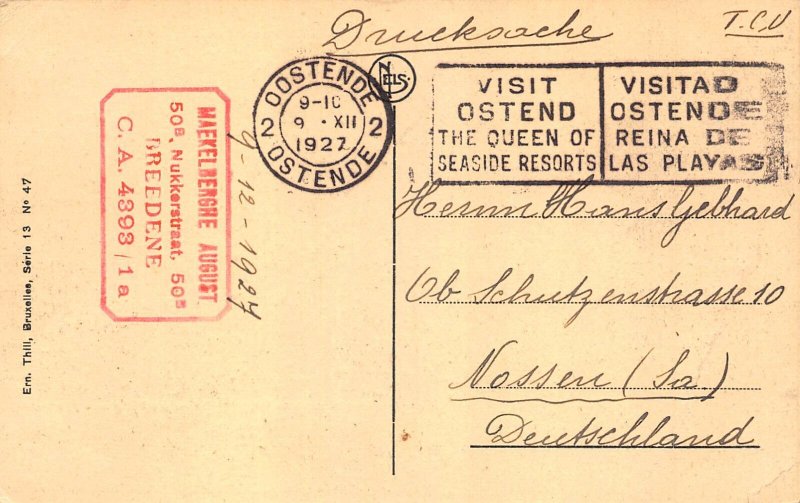 Drucksache
T.C.V
OOSTENDE
9-10
9 · XII
1927
2 2
OSTENDE
NELS
VISIT
OSTEND
THE QUEEN OF
SEASIDE RESORTS
VISITAD
OSTENDE
REINA DE
LAS PLAYAS
MAEKELBERGHE AUGUST
50B, Nukkerstraat, 50B
BREEDENE
C. A. 4393 / 1 a
9-12-1927
Herrn Hans Gebhard
Ob Schutzenstrasse 10
Nossen (Sa.)
Deutschland
Ern. Thill, Bruxelles, Série 13 No 47